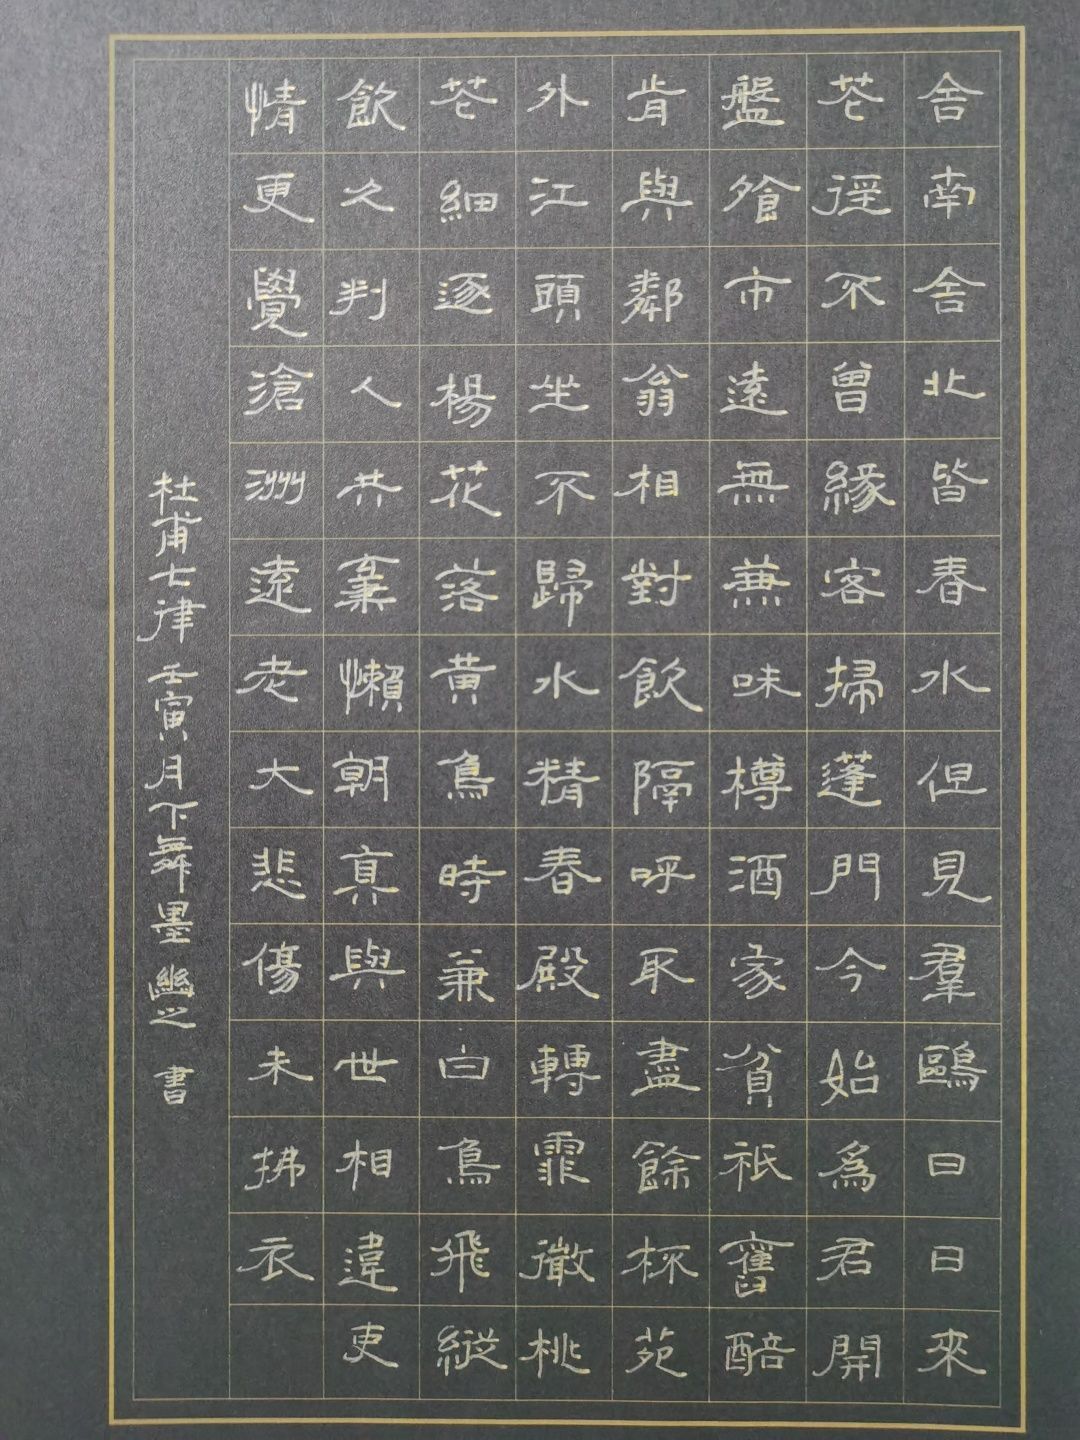 舍南舍北皆春水但見羣鷗日日來
花徑不曾緣客掃蓬門今始爲君開
盤飧市遠無兼味樽酒家貧衹舊醅
肯與鄰翁相對飲隔呼取盡餘杯苑
外江頭坐不歸水精春殿轉霏微桃
花細逐楊花落黃鳥時兼白鳥飛縱
飲久判人共棄懶朝真與世相違吏
情更覺滄洲遠老大悲傷未拂衣
杜甫七律 壬寅月下舞墨 幽之 書